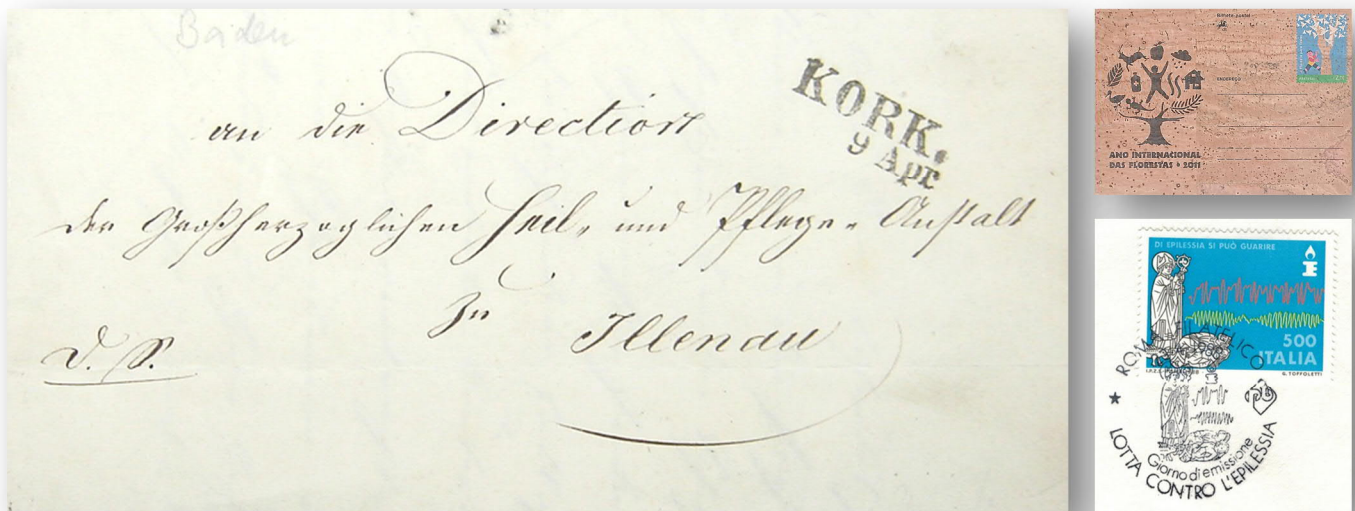 Baden
an die Direction
der Großherzoglichen Heil- und Pflege-Anstalt
zu Illenau
D. S.
KORK.
9 Apr
ENDEREÇO
ANO INTERNACIONAL
DAS FLORESTAS • 2011
DI EPILESSIA SI PUÒ GUARIRE
500
ITALIA
E. TOFFOLETTI
ROMA FILATELICO
Giorno di emissione
LOTTA CONTRO L'EPILESSIA